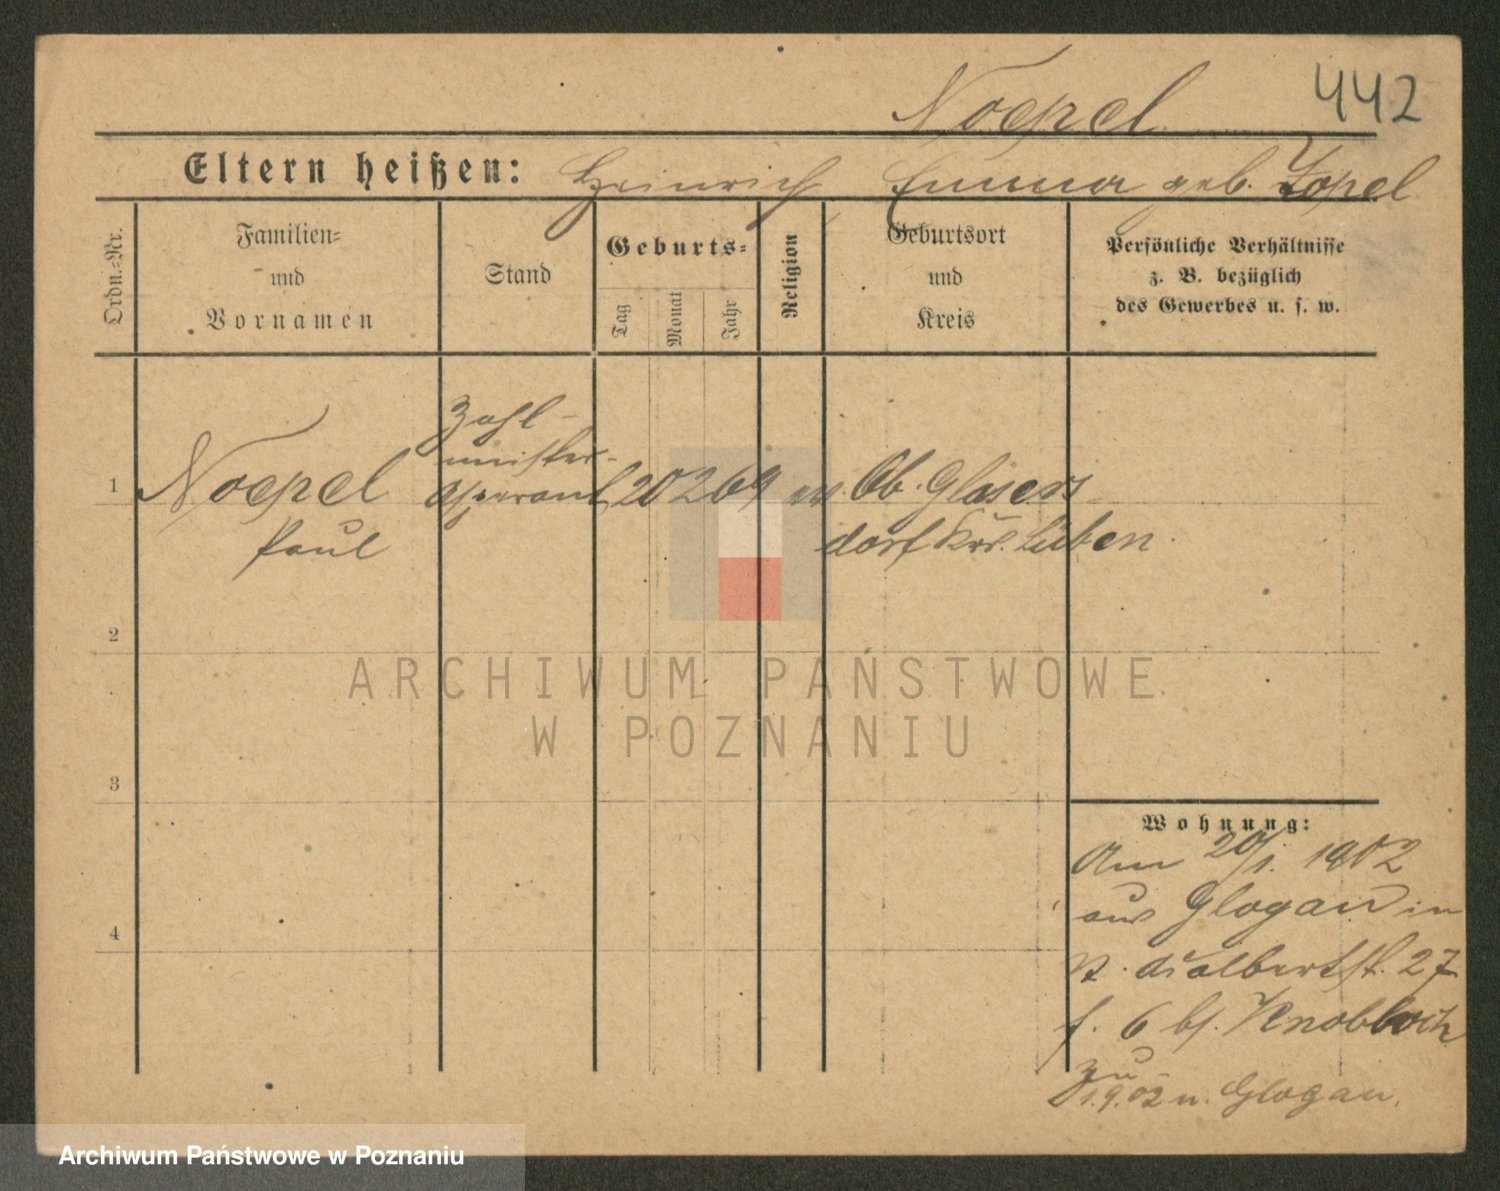 442
Noepel
Eltern heißen: Heinrich, Emma geb. Zopel
Ordn.=Nr.
Familien=
und
Vornamen
Stand
Geburts=
Tag
Monat
Jahr
Religion
Geburtsort
und
Kreis
Persönliche Verhältnisse
z. B. bezüglich
des Gewerbes u. s. w.
1
Noepel
Paul
Zahl-
meister-
Aspirant
20 2 69
ev.
Ob. Gläsers-
dorf Krs. Lüben
2
3
4
ARCHIWUM PAŃSTWOWE
W POZNANIU
Wohnung:
Am 20/1. 1902
aus Glogau in
albertstr. 27
f. 6 bj. Knobloch
zu
1.9.02 n. Glogau.
Archiwum Państwowe w Poznaniu